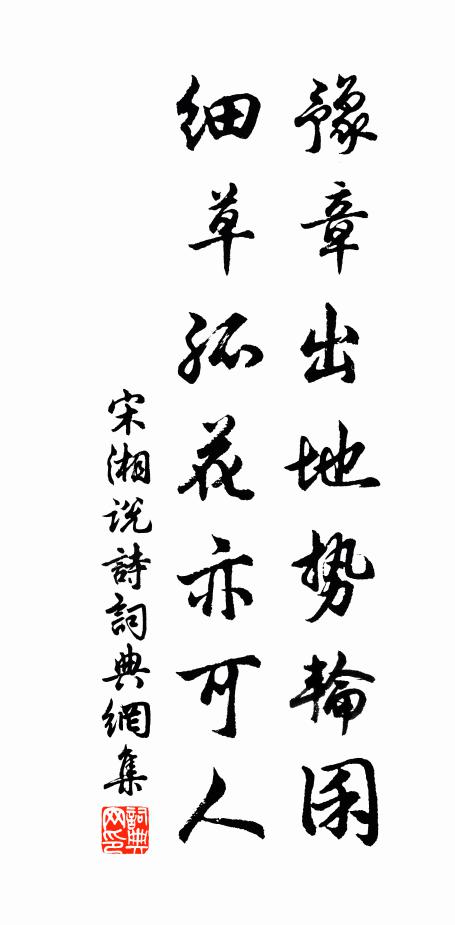 豫章出地势輪囷
细草孤花亦可人
宋湘说詩詞典網集
詞典网印